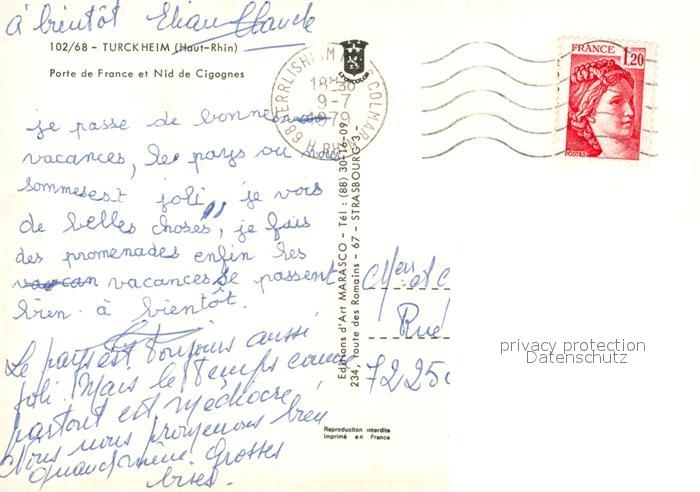 à bientôt Eliane Claude
102/68 - TURCKHEIM (Haut-Rhin)
Porte de France et Nid de Cigognes
je passe de bonnes
vacances, les pays ou nous
sommes est joli, je vois
de belles choses, je fais
des promenades enfin les
vacances se passent
bien à bientôt.
Le pays est toujours aussi
joli. Mais le temps comme
partout est médiocre,
Nous nous promenons bien
quand même. Grosses
bises.
18 H 30
9-7
1979
68 HERRLISHEIM P. COLMAR
H. RHIN
FRANCE
1,20
POSTES
Editions d'Art MARASCO - Tél : (88) 30-16-09
234, route des Romains - 67 - STRASBOURG 3
Reproduction interdite
Imprimé en France
Men et
Rue
7225
privacy protection
Datenschutz